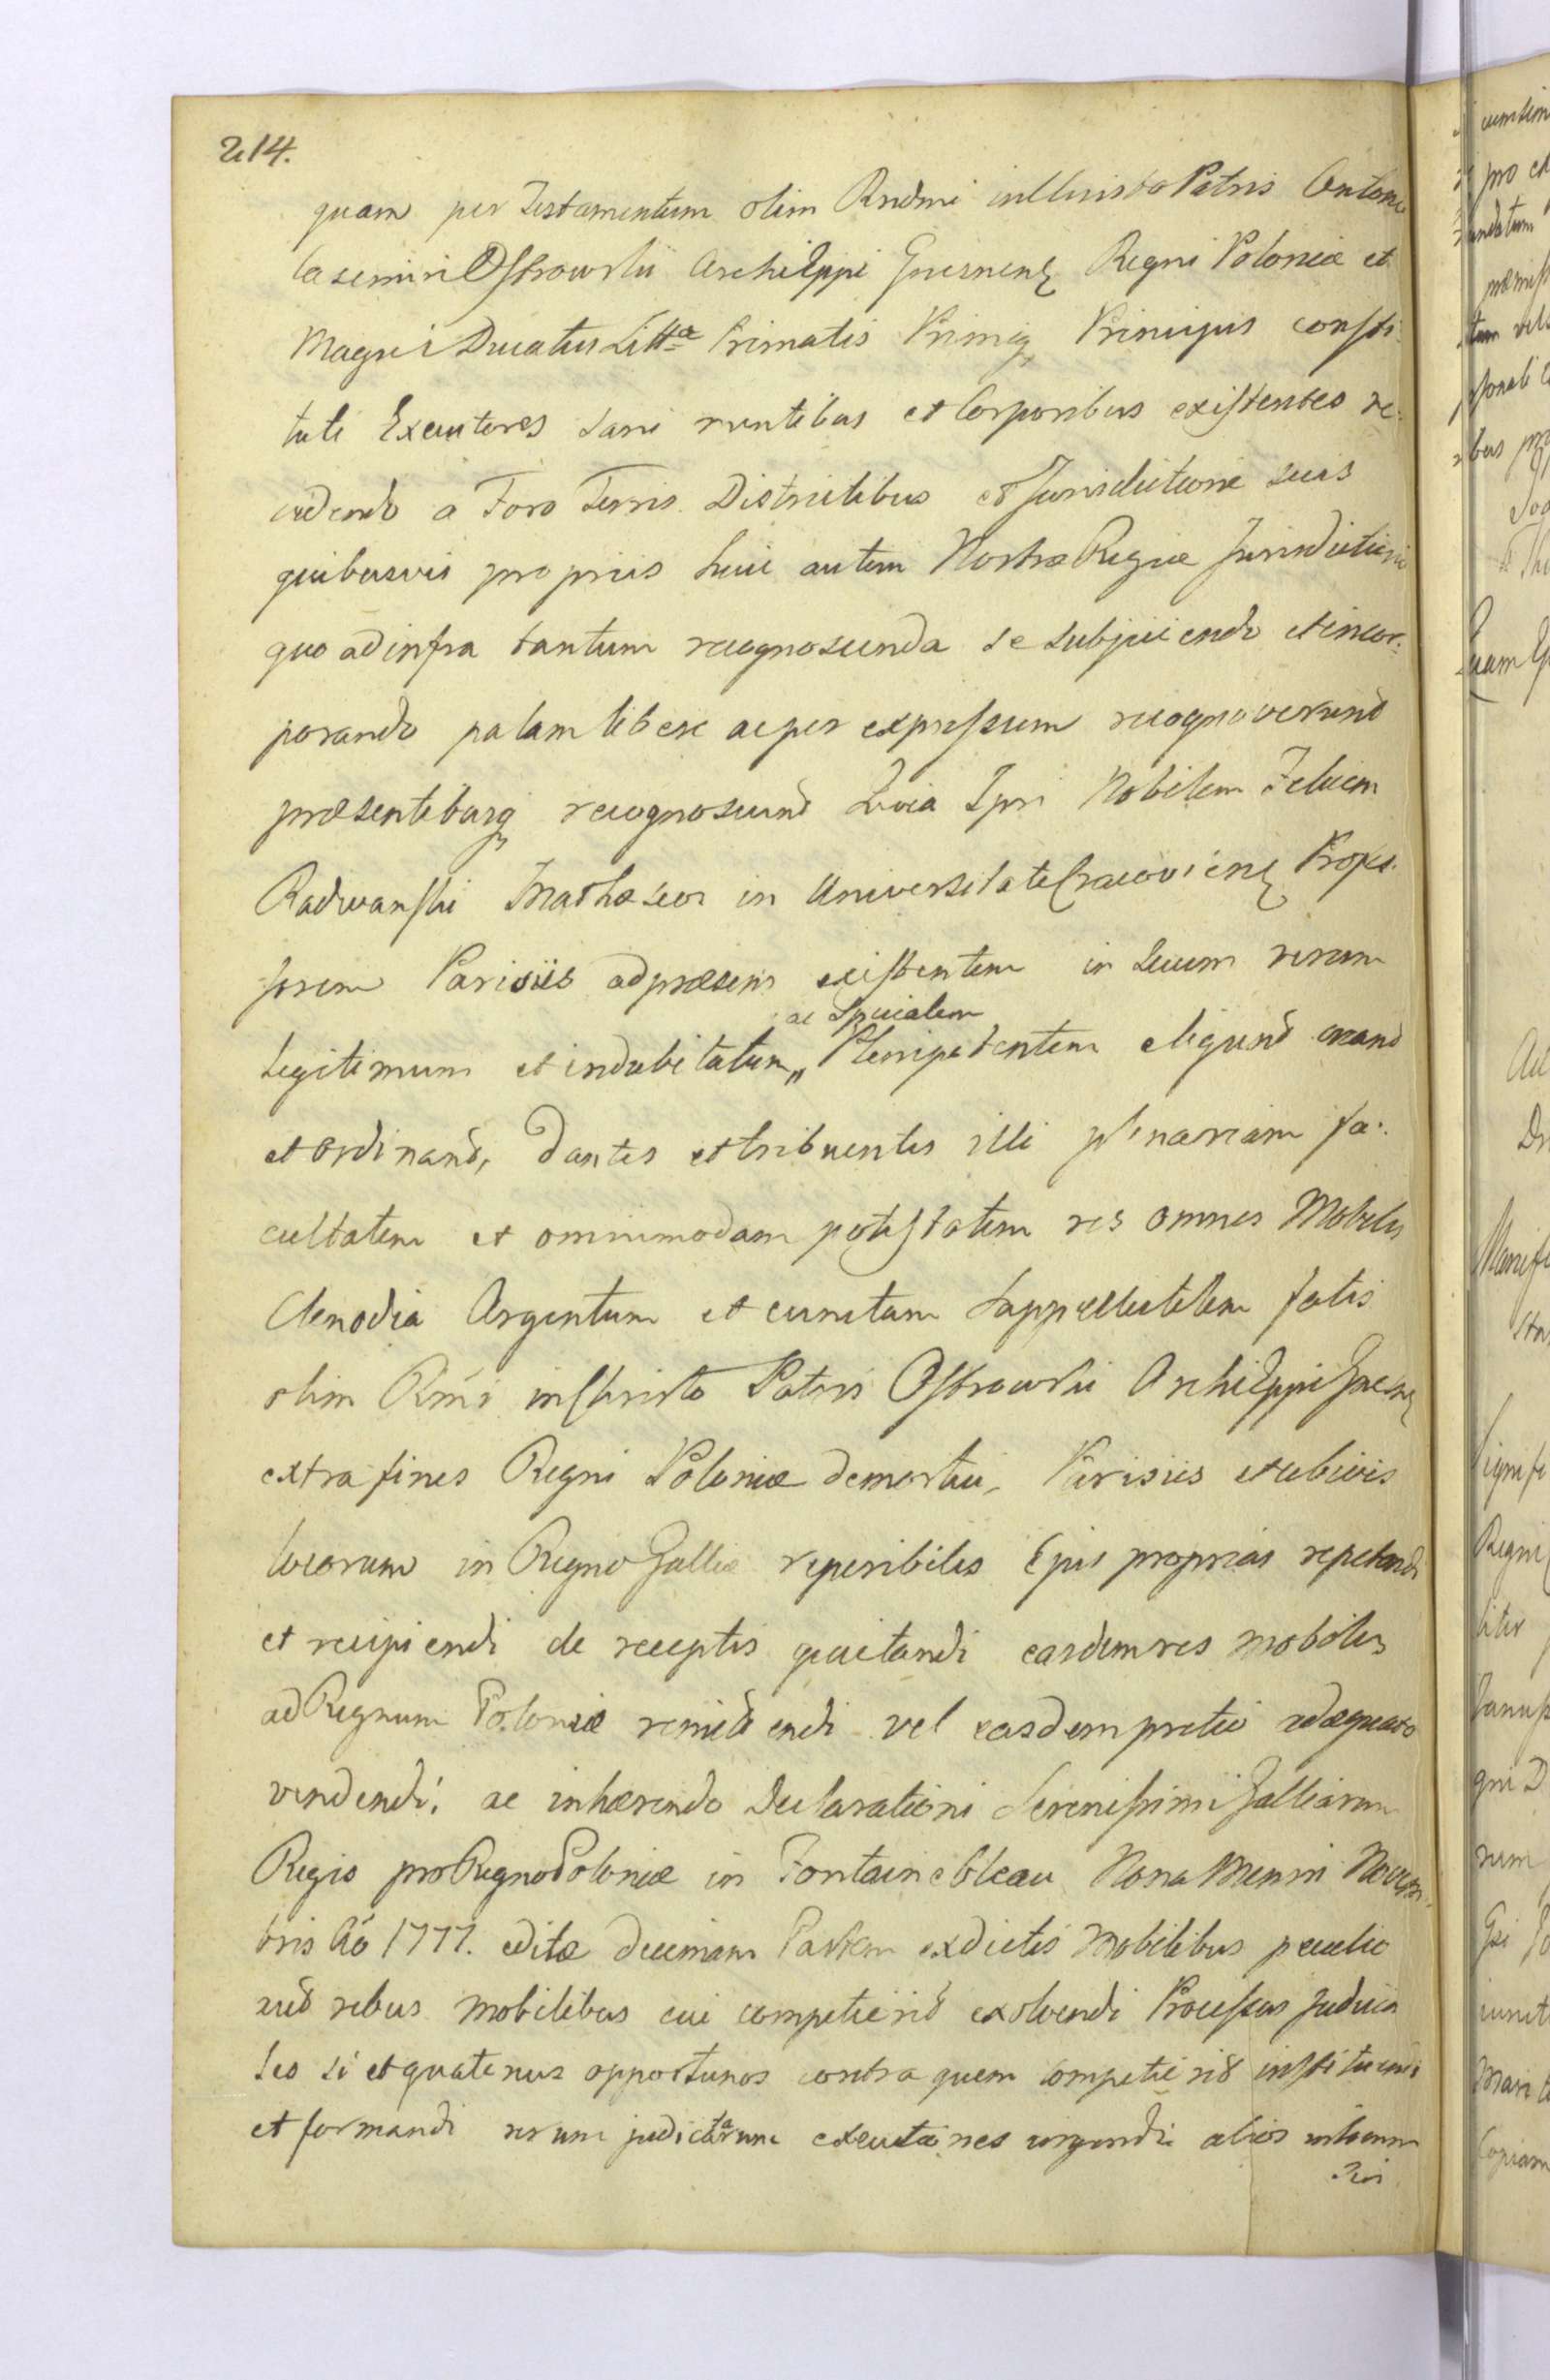 214.
quam per Testamentum olim Rndmi in Christo Patris Antoni
Casimiri Ostrowski Archi Eppi Gnesnens Regni Poloniæ et
Magni Ducatus Littæ Primatis Primiq Principis consti:
tuti Executores sani mentibus et Corporibus existentes re:
cedendo a Foro Terris Districtibus et Jurisdictione suis
quibusvis propriis huic autem Nostræ Regiæ Jurisdictioni
quo ad infra tantum recognoscenda se subjiciendo et incor:
porando palam libere ac per expressum recognoverund
præsentibusq recognoscund Quia Ipsi Nobilem Felicem
Radwanski Matheseos in Universitate Cracoviens Profes:
sorem Parisiis ad præsens existentem in suum verum
ac Specialem
legitimum et indubitatum„ Plenipotentem eligund creand
et ordinand, Dantes et tribuentes illi plenariam fa:
cultatem et omnimodam potestatem res omnes Mobiles
Clenodia Argentum et cunctam Suppellectilem fatis
olim Rmi in Christo Patris Ostrowski Archi Eppi Gnesnens
extra fines Regni Poloniæ demortui, Parisiis et ubivis
locorum in Regno Galliæ reperibiles Ejus proprias repetendi
et recipiendi de receptis quietandi easdem res mobiles
ad Regnum Poloniæ remittendi vel easdem pretio adæquato
vendendi; ac inhærendo Declarationi Serenissimi Galliarum
Regis pro Regno Poloniæ in Fontainebleau Nona Mensis Novem:
bris Aō 1777. editæ decimam Partem ex dictis Mobilibus peculio
aud rebus mobilibus cui competierid exolvendi Processus Judicia
les si et quatenus opportunos contra quem competierid instituendi
et formandi rerum judicatarum executiones urgendi alios